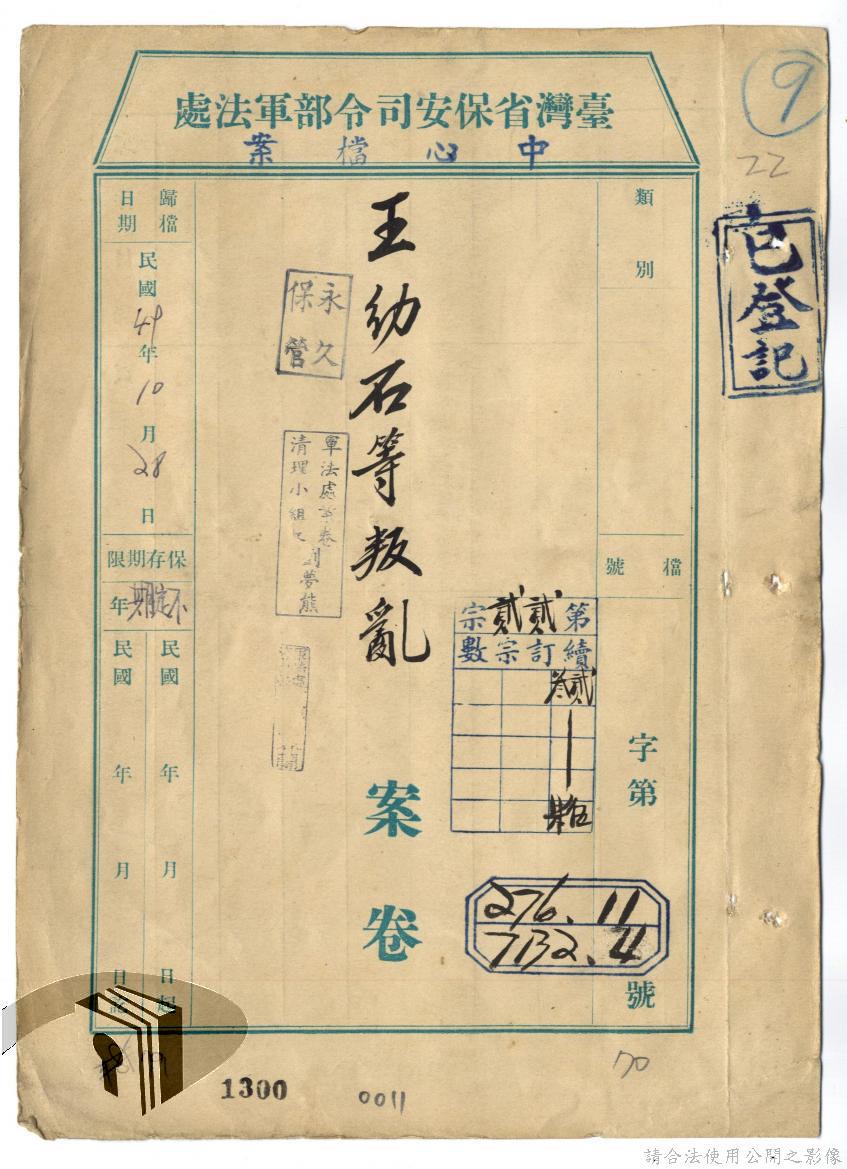 臺灣省保安司令部軍法處
中心檔案
9
22
已登記
類別
檔號
字第
號
276.11
7132.4
第貳訂貳宗
續宗數
貳
王幼石等叛亂
案卷
永久
保管
軍法處
清理小組
劉夢熊
歸檔日期
民國49年10月28日
保存期限
不定期年
民國 年 月 日起
民國 年 月 日
70
1300
0011
請合法使用公開之影像